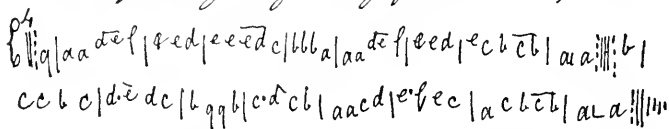 g | a a d e f | e e d | e e e d c | b b b a | a a d e f | e e d | e c b c b | a a b |
c c b c | d e d c | b g g b | c d c b | a a c d | e f e c | a c b c b | a a